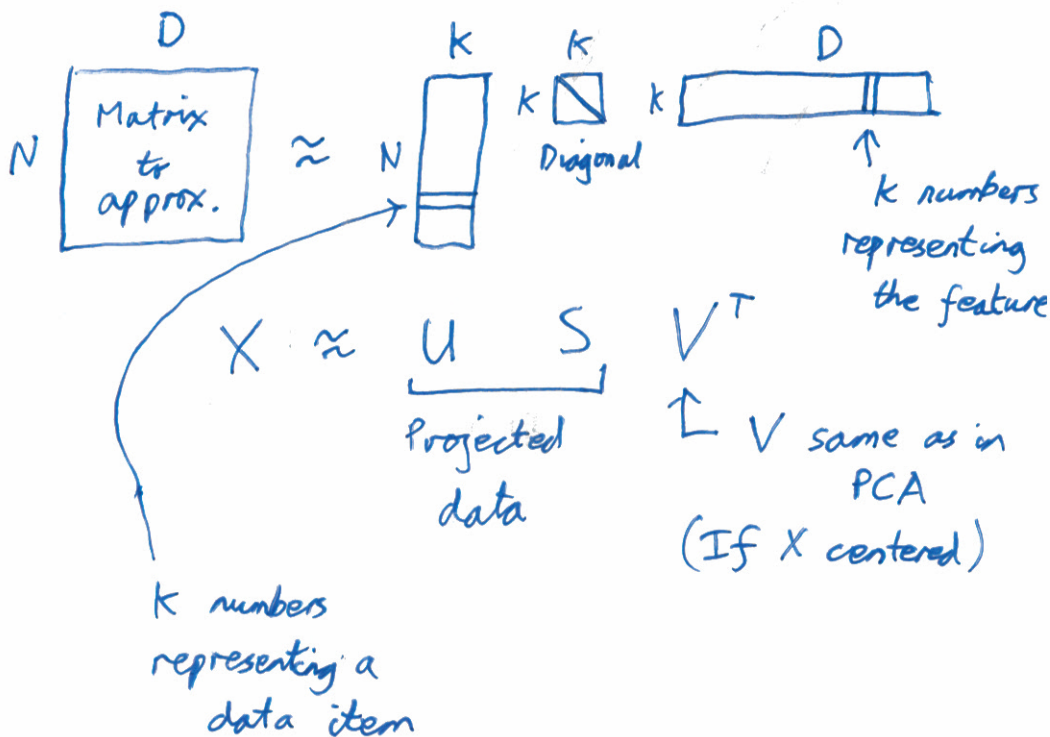 D
K
K
D
N
Matrix
to
approx.
≈
N
K
K
Diagonal
K numbers
representing
the feature
X ≈ U S V^T
Projected
data
V same as in
PCA
(If X centered)
K numbers
representing a
data item